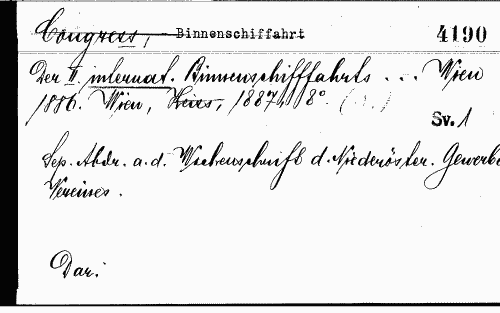 Congress, Binnenschiffahrt 4190
Der II. internat. Binnenschifffahrts ... Wien
1886. Wien, 1887, 8°
Sv. 1
Sep. Abdr. a. d. Wochenschrift d. Niederöster. Gewerbe
Vereines.
Dar.